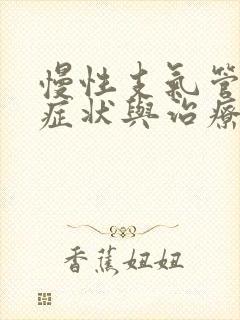 慢性支氣管
症状與治療
香蕉妞妞